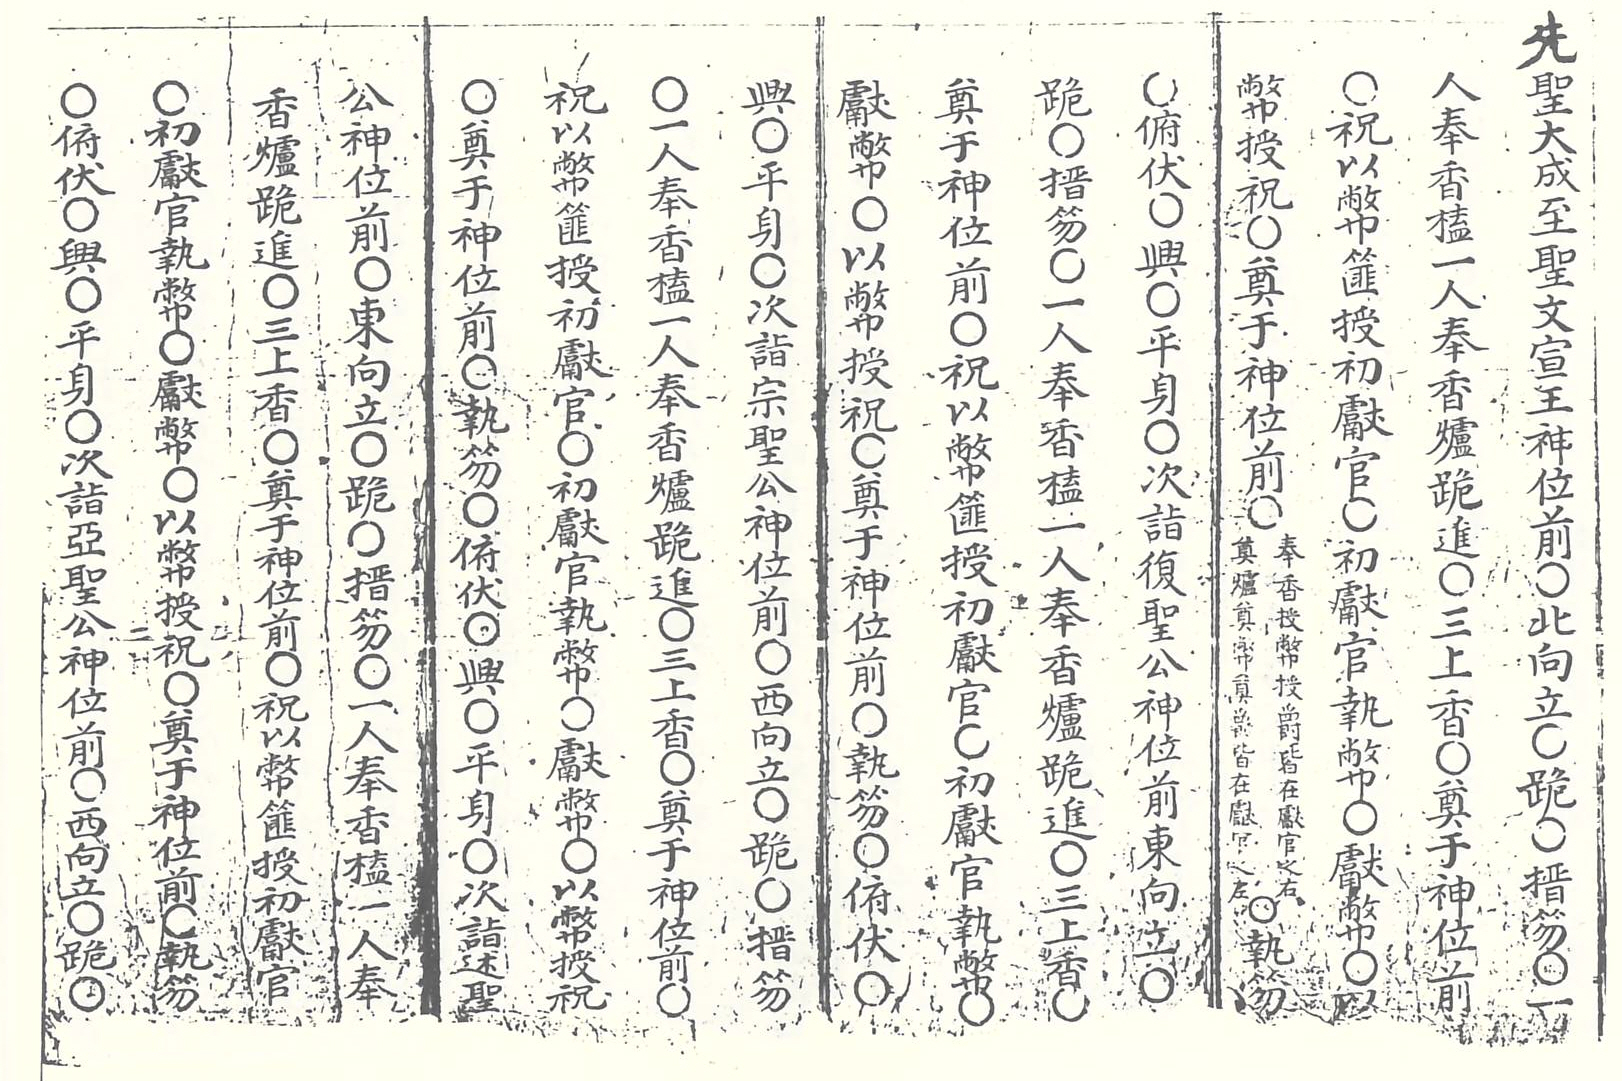 先聖大成至聖文宣王神位前○北向立○跪○搢笏○一
人奉香榼一人奉香爐跪進○三上香○奠于神位前
○祝以幣篚授初獻官○初獻官執幣○獻幣○以
幣授祝○奠于神位前○奉香授幣授爵皆在獻官之右奠爐奠幣奠爵皆在獻官之左○執笏
○俯伏○興○平身○次詣復聖公神位前東向立○
跪○搢笏○一人奉香榼一人奉香爐跪進○三上香○
奠于神位前○祝以幣篚授初獻官○初獻官執幣○
獻幣○以幣授祝○奠于神位前○執笏○俯伏○
興○平身○次詣宗聖公神位前○西向立○跪○搢笏
○一人奉香榼一人奉香爐跪進○三上香○奠于神位前○
祝以幣篚授初獻官○初獻官執幣○獻幣○以幣授祝
○奠于神位前○執笏○俯伏○興○平身○次詣述聖
公神位前○東向立○跪○搢笏○一人奉香榼一人奉
香爐跪進○三上香○奠于神位前○祝以幣篚授初獻官
○初獻官執幣○獻幣○以幣授祝○奠于神位前○執笏
○俯伏○興○平身○次詣亞聖公神位前○西向立○跪○